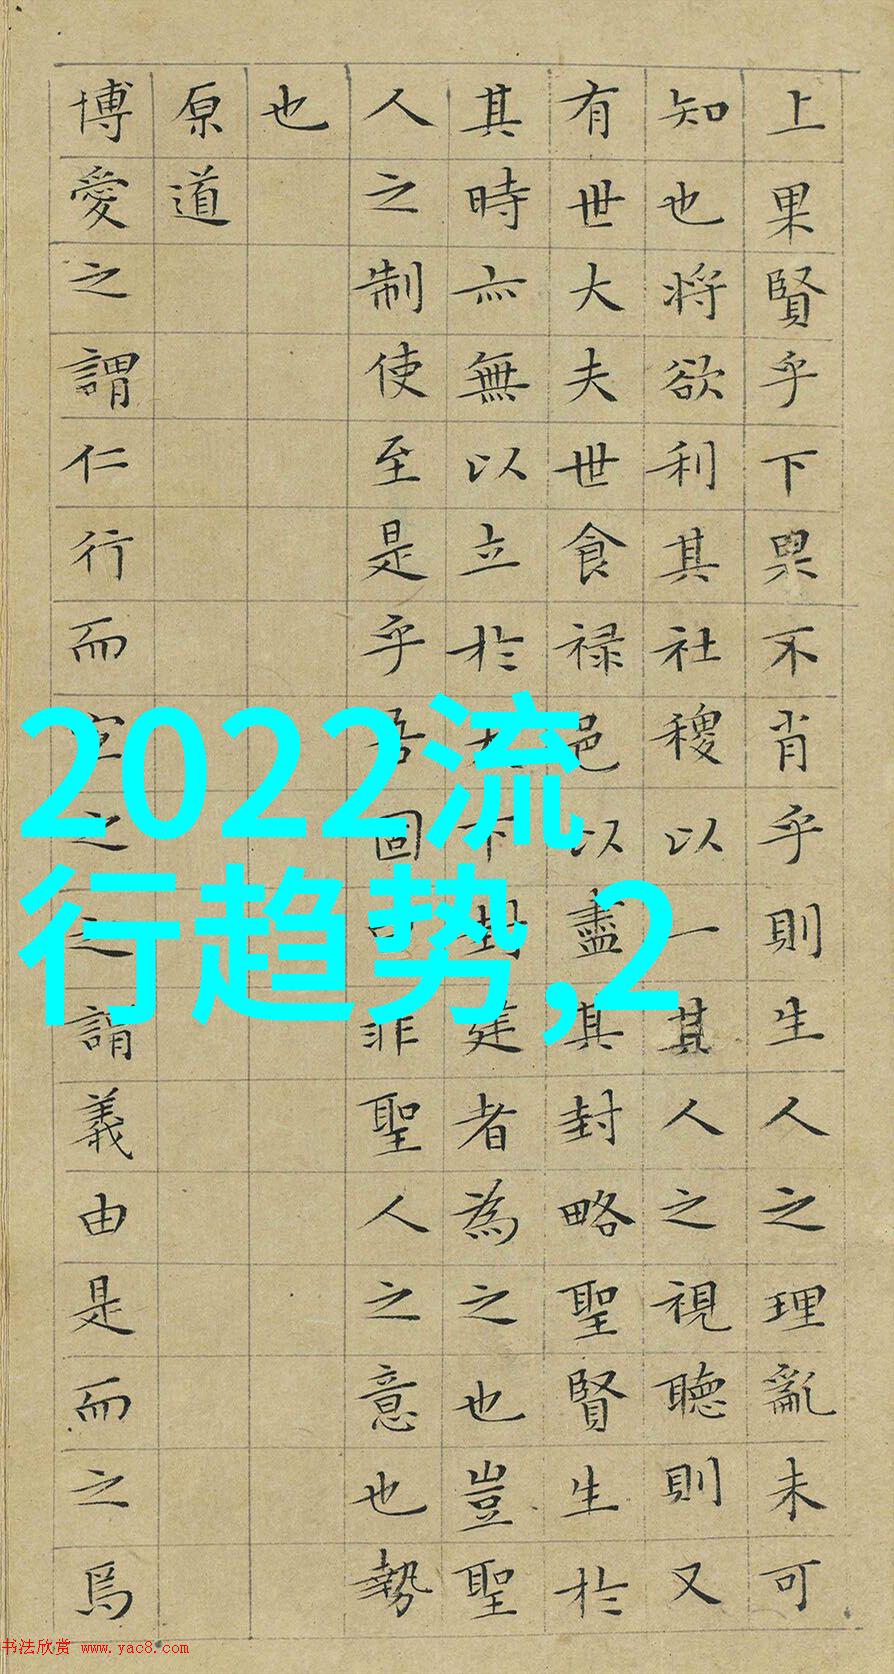 上果賢乎下果不肖乎則生人之理亂未可
知也将欲利其社稷以一其人之視聽則又
有世大夫世食禄邑以盡其封略聖賢生於
其時亦無以立於天下封建者為之也豈聖
人之制使至是乎吾固曰非聖人之意也勢
也
原道
博愛之謂仁行而宜之之謂義由是而之焉
2022流
行趋势,2
书法欣赏 www.yac8.com